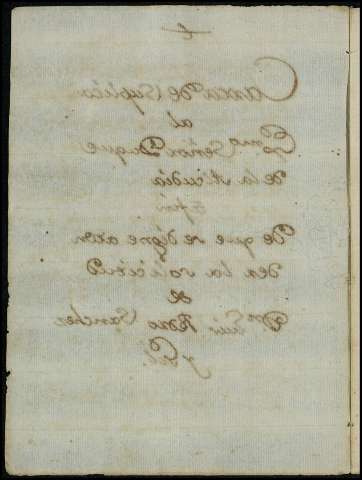 Carta de Suplica
al
Exmo Señor Duque
de la Alcudia
a fin
De que se digne aten
der la solicitud
de
Dn Luis Roxo Sanchez
y Gil.